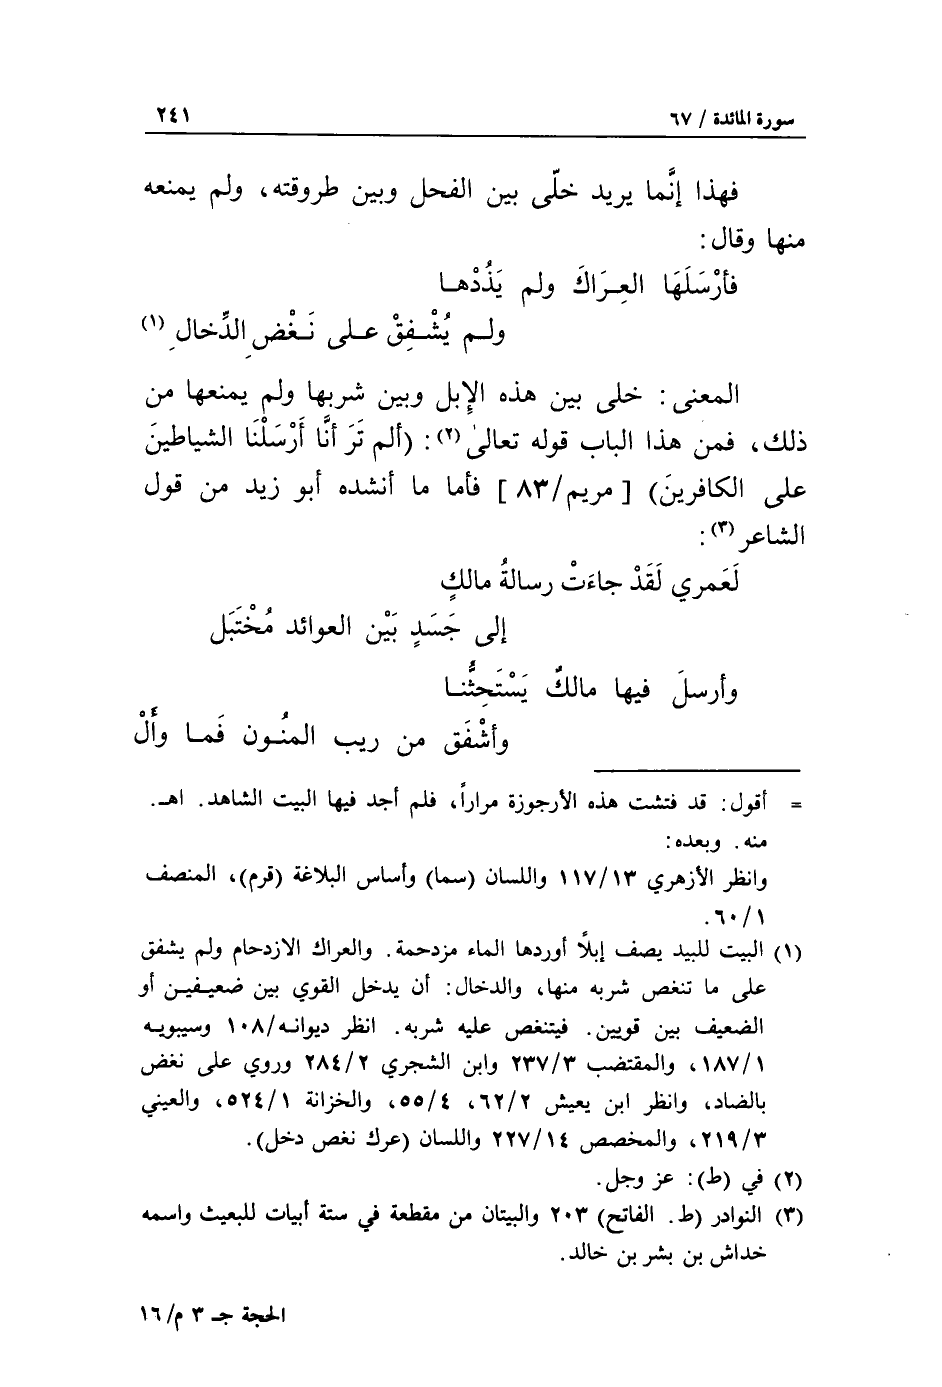 سورة المائدة / ٦٧
٢٤١
فهذا إنَّما يريد خلّى بين الفحل وبين طروقته، ولم يمنعه
منها وقال:
فأرْسَلَهَا العِـرَاكَ ولم يَذُدْهـا
ولـم يُشْـفِقْ علـى نَـغْضِ الدِّخال (١)
المعنى: خلى بين هذه الإبل وبين شربها ولم يمنعها من
ذلك، فمن هذا الباب قوله تعالىٰ (٢): (ألم تَرَ أنَّا أَرْسَلْنَا الشياطينَ
على الكافرينَ) [مريم/٨٣] فأما ما أنشده أبو زيد من قول
الشاعر (٣):
لَعَمري لَقَدْ جاءَتْ رسالةُ مالكٍ
إلى جَسَدٍ بَيْن العوائد مُخْتَبَل
وأرسلَ فيها مالكٌ يَسْتَحِثُّنـا
وأشْفَق من ريب المنُـون فَمـا وأَلْ
= أقول: قد فتشت هذه الأرجوزة مراراً، فلم أجد فيها البيت الشاهد. اهـ.
منه. وبعده:
وانظر الأزهري ١١٧/١٣ واللسان (سما) وأساس البلاغة (قرم)، المنصف
٦٠/١.
(١) البيت للبيد يصف إبلًا أوردها الماء مزدحمة. والعراك الازدحام ولم يشفق
على ما تنغص شربه منها، والدخال: أن يدخل القوي بين ضعيـفيـن أو
الضعيف بين قويين. فيتنغص عليه شربه. انظر ديوانـه/١٠٨ وسيبويـه
١٨٧/١، والمقتضب ٢٣٧/٣ وابن الشجري ٢٨٤/٢ وروي على نغض
بالضاد، وانظر ابن يعيش ٦٢/٢، ٥٥/٤، والخزانة ٥٢٤/١، والعيني
٢١٩/٣، والمخصص ٢٢٧/١٤ واللسان (عرك نغص دخل).
(٢) في (ط): عز وجل.
(٣) النوادر (ط. الفاتح) ٢٠٣ والبيتان من مقطعة في ستة أبيات للبعيث واسمه
خداش بن بشر بن خالد.
الحجة جـ ٣ م/١٦